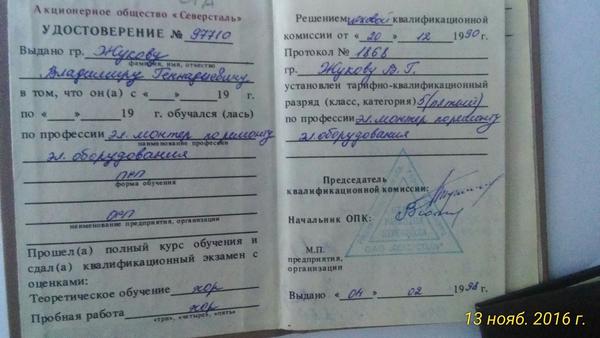 Акционерное общество «Северсталь»
УДОСТОВЕРЕНИЕ № 97710
Выдано гр. Жукову
фамилия, имя, отчество
Владимиру Геннадиевичу
в том, что он(а) с « » 19 г.
по « » 19 г. обучался (лась)
по профессии эл. монтер по ремонту
наименование профессии
эл. оборудования
форма обучения
наименование предприятия, организации
Прошел(а) полный курс обучения и
сдал(а) квалификационный экзамен с
оценками:
Теоретическое обучение хор
Пробная работа хор
«три», «четыре», «пять»
Решением цеховой квалификационной
комиссии от « 20 » 12 1990 г.
Протокол № 1868
гр. Жукову В.Г.
установлен тарифно-квалификационный
разряд (класс, категория) 5 (пятый)
по профессии эл. монтер по ремонту
эл оборудования
Председатель
квалификационной комиссии:
Начальник ОПК:
М.П.
предприятия,
организации
Выдано « 04 » 02 1998 г.
13 нояб. 2016 г.